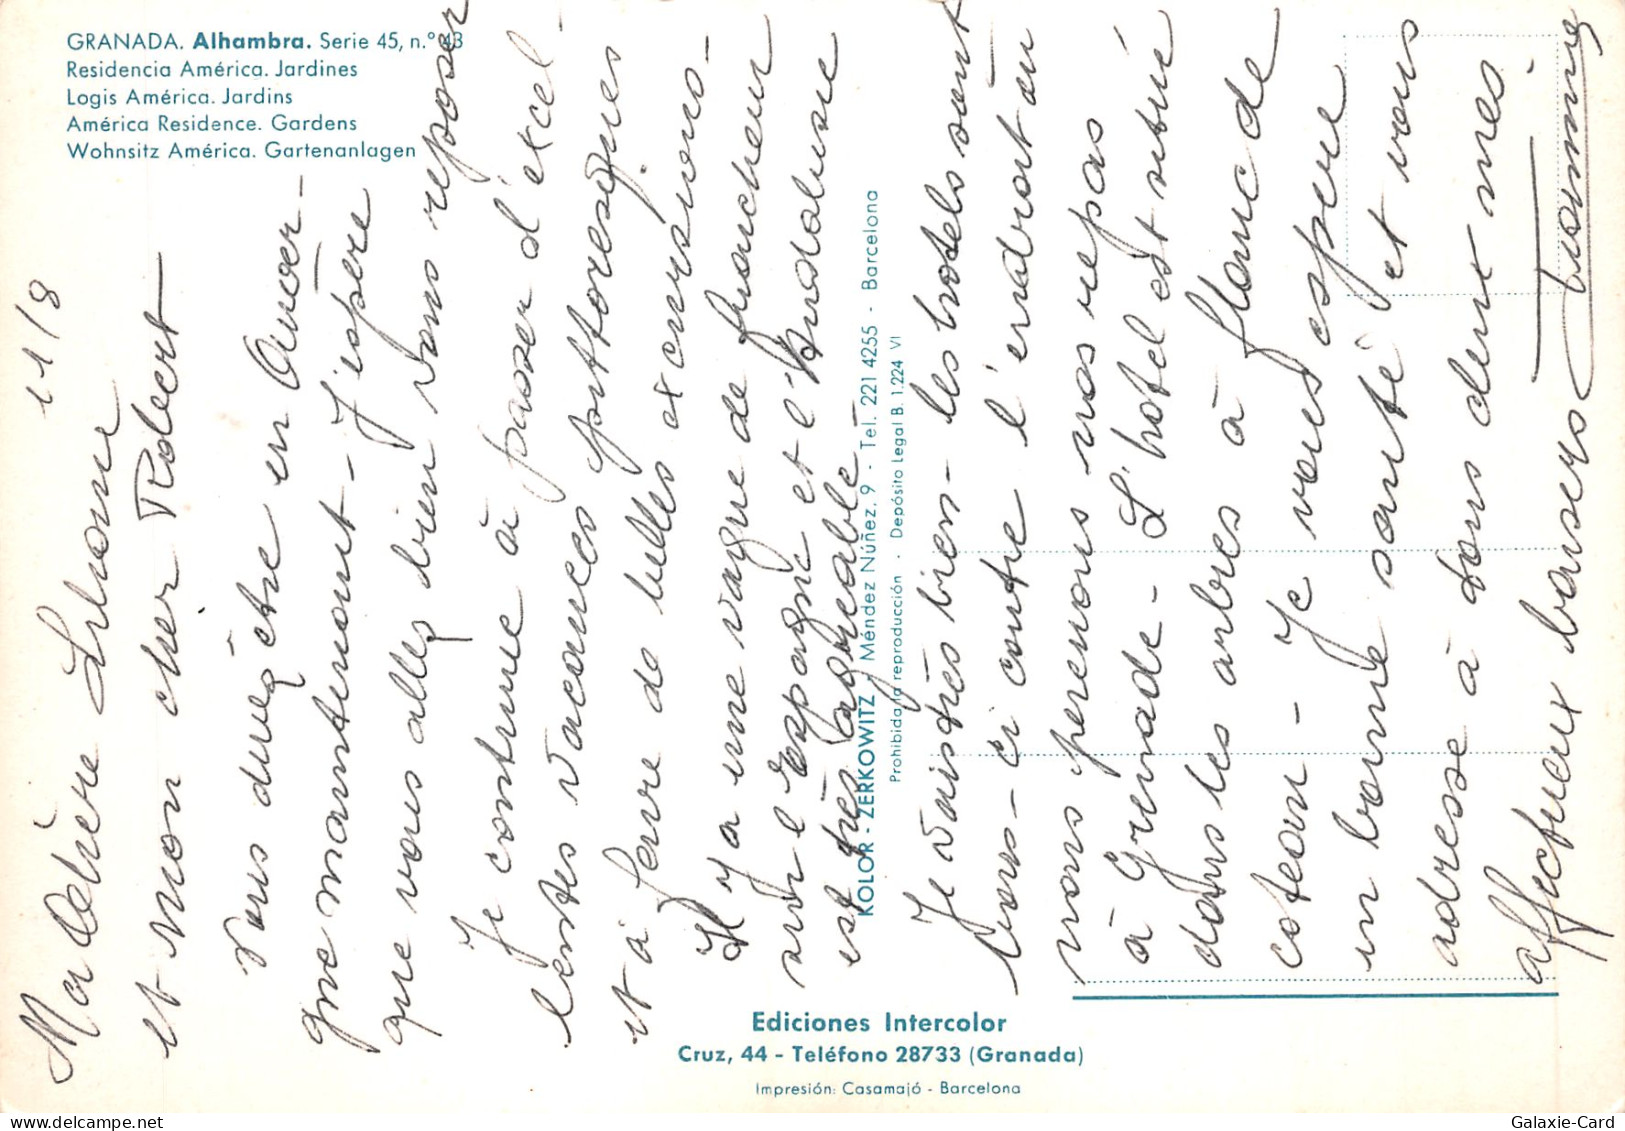 GRANADA. Alhambra. Serie 45, n.º 43
Residencia América. Jardines
Logis América. Jardins
América Residence. Gardens
Wohnsitz América. Gartenanlagen
11/8
Ma chère Simone
et mon cher Robert
Vous devez être en Auver-
gne maintenant - J'espère
que vous allez bien vous reposer
Je continue à passer d'excel-
lentes vacances pittoresques
et à faire de belles excursions -
Il y a une vague de fraicheur
sur l'Espagne et l'Andalousie
est très agréable -
Je vais très bien - les hotels sont
bons - ci contre l'endroit où
nous prenons nos repas
à Grenade - L'hotel est situé
dans les arbres à flanc de
coteau - Je vous espère
en bonne santé et vous
adresse à tous deux mes
affectueux baisers
KOLOR - ZERKOWITZ Méndez Núñez, 9 - Tel. 221 4255 - Barcelona
Prohibida la reproducción - Depósito Legal B. 1.224 VI
Ediciones Intercolor
Cruz, 44 - Teléfono 28733 (Granada)
Impresión: Casamajó - Barcelona
Galaxie-Card